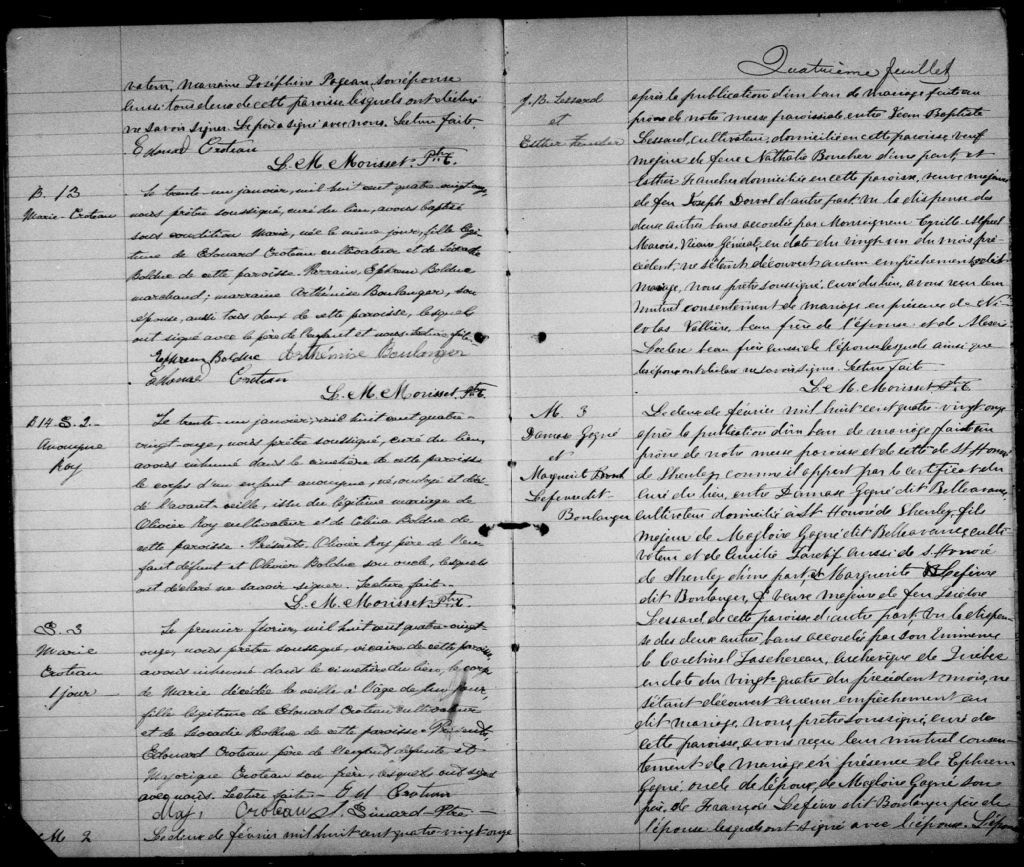 vateur, marraine Joséphine Pageau, son épouse
aussi tous deux de cette paroisse lesquels ont déclaré
ne savoir signer. Le père a signé avec nous. Lecture faite.
Edouard Croteau
L. M. Morisset Ptre.
B. 13
Marie-Croteau
Le trente-un janvier, mil huit cent quatre-vingt-onze
nous prêtre soussigné, curé du lieu, avons baptisé
sous condition Marie, née le même jour, fille légi-
time de Edouard Croteau cultivateur et de Léocadie
Bolduc de cette paroisse. Parrain, Ephrem Bolduc
marchand; marraine Arthémise Boulanger, son
épouse, aussi tous deux de cette paroisse, lesquels
ont signé avec le père de l'enfant et nous. Lecture faite.
Ephrem Bolduc Arthémise Boulanger
Edouard Croteau
L. M. Morisset Ptre.
B 14 S. 2-
Anonyme
Roy
Le trente-un janvier, mil huit cent quatre-
vingt-onze, nous prêtre soussigné, curé du lieu,
avons inhumé dans le cimetière de cette paroisse
le corps d'un enfant anonyme, né, ondoyé et décé-
dé l'avant-veille, issu du légitime mariage de
Olivier Roy cultivateur et de Célina Bolduc de
cette paroisse. Présents, Olivier Roy père de l'en-
fant défunt et Olivier Bolduc son oncle, lesquels
ont déclaré ne savoir signer. Lecture faite.-
L. M. Morisset Ptre.
S. 3
Marie
Croteau
1 jour
Le premier février, mil huit cent quatre-vingt-
onze, nous prêtre soussigné, vicaire de cette paroisse
avons inhumé dans le cimetière du lieu, le corps
de Marie décédée la veille à l'âge de un jour
fille légitime de Edouard Croteau cultivateur
et de Léocadie Bolduc de cette paroisse. Présents,
Edouard Croteau père de l'enfant défunte et
Majorique Croteau son frère, lesquels ont signé
avec nous. Lecture faite- Croteau
Maj. Croteau J. Simard Ptre
M 2
Le deux de février mil huit cent quatre vingt onze
Quatrième feuillet
J. B. Lessard
et
Esther
après la publication d'un ban de mariage fait au
prône de notre messe paroissiale, entre Jean Baptiste
Lessard, cultivateur, domicilié en cette paroisse, veuf
majeur de feue Nathalie Boucher d'une part, et
Esther Faucher domiciliée en cette paroisse, veuve majeure
de feu Joseph Dorval d'autre part. Vu la dispense des
deux autres bans accordée par Monseigneur Cyrille Alfred
Marois, Vicaire Général, en date du vingt-un du mois pré-
cédent, ne s'étant découvert aucun empêchement au dit
mariage, nous prêtre soussigné, curé du lieu, avons reçu leur
mutuel consentement de mariage en présence de Ni-
colas Vallière, beau frère de l'épouse et de
Leclerc beau frère aussi de l'épouse lesquels ainsi que
les époux ont déclaré ne savoir signer. Lecture fait
L. M. Morisset Ptre
M. 3
Damase Gagné
et
Marguerite
Lefebvre dit
Boulanger
Le deux de février mil huit cent quatre-vingt-onze
après la publication d'un ban de mariage fait au
prône de notre messe paroisse et de celle de St Honoré
de Shenley comme il appert par le certificat du
curé du lieu, entre Damase Gagné dit Belleavance,
cultivateur domicilié à St Honoré de Shenley, fils
majeur de Magloire Gagné dit Belleavance, culti-
vateur et de Amélie Tardif aussi de St Honoré
de Shenley d'une part, et Marguerite Lefebvre
dit Boulanger, veuve majeure de feu Isidore
Lessard de cette paroisse d'autre part. Vu la dispen-
se des deux autres bans accordée par Son Eminence
le Cardinal Taschereau, archevêque de Québec
en date du vingt-quatre du précédent mois, ne
s'étant découvert aucun empêchement au
dit mariage, nous, prêtre soussigné, curé de
cette paroisse, avons reçu leur mutuel consen-
tement de mariage en présence de Ephrem
Gagné, oncle de l'époux, de Magloire Gagné son
père, de François Lefebvre dit Boulanger père de
l'épouse lesquels ont signé avec l'épouse. L'époux